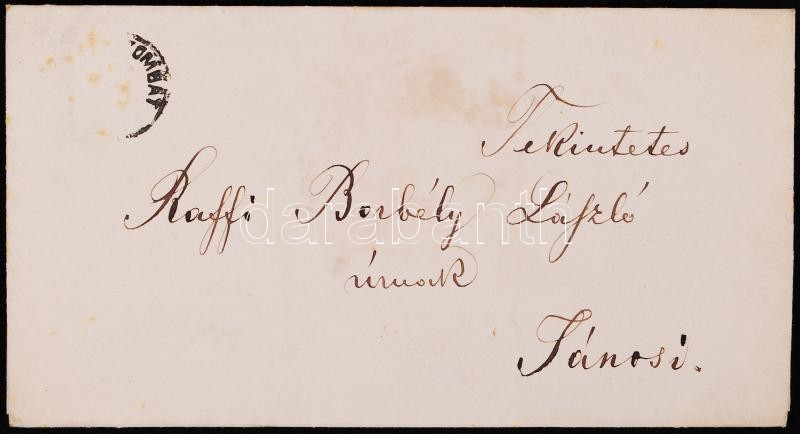 OMBAT
Tekintetes
Raffi Borbély László
darabanth
úrnak
Jánosi.